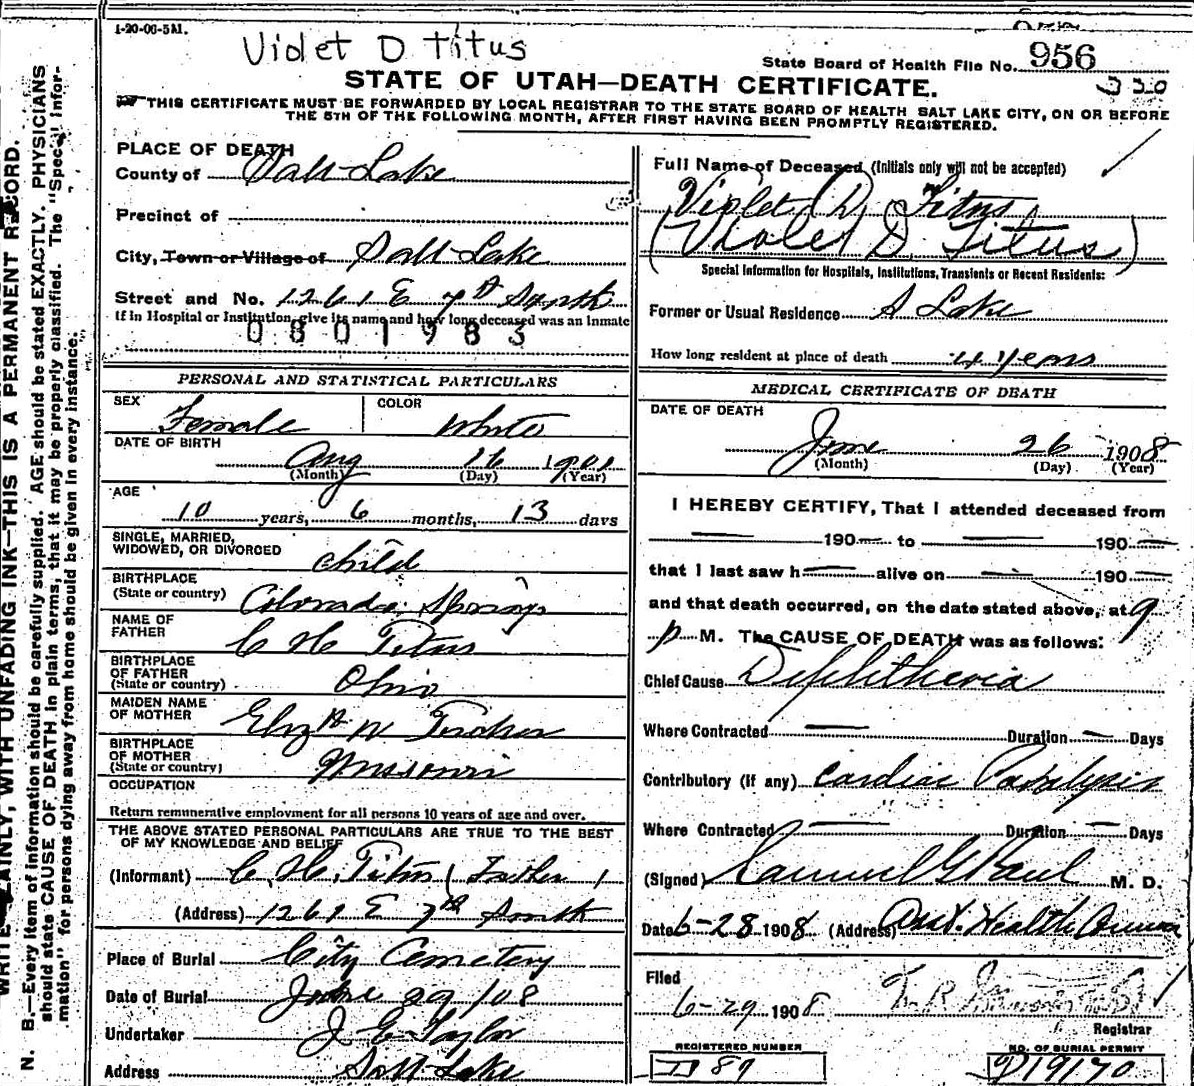 1-20-06-5M.
Violet D Titus
State Board of Health File No. 956
350
STATE OF UTAH—DEATH CERTIFICATE.
THIS CERTIFICATE MUST BE FORWARDED BY LOCAL REGISTRAR TO THE STATE BOARD OF HEALTH SALT LAKE CITY, ON OR BEFORE
THE 5TH OF THE FOLLOWING MONTH, AFTER FIRST HAVING BEEN PROMPTLY REGISTERED.
PLACE OF DEATH
County of Salt Lake
Precinct of
City, Town or Village of Salt Lake
Street and No. 1261 E 7th South
If in Hospital or Institution, give its name and how long deceased was an inmate
0801983
PERSONAL AND STATISTICAL PARTICULARS
SEX Female COLOR White
DATE OF BIRTH
Aug 16 1901
(Month) (Day) (Year)
AGE
10 years, 6 months, 13 days
SINGLE, MARRIED,
WIDOWED, OR DIVORCED child
BIRTHPLACE
(State or country) Colorado Springs
NAME OF
FATHER C H Titus
BIRTHPLACE
OF FATHER
(State or country) Ohio
MAIDEN NAME
OF MOTHER Elizth W
BIRTHPLACE
OF MOTHER
(State or country) Missouri
OCCUPATION
Return remunerative employment for all persons 10 years of age and over.
THE ABOVE STATED PERSONAL PARTICULARS ARE TRUE TO THE BEST
OF MY KNOWLEDGE AND BELIEF
(Informant) C. H. Titus (Father)
(Address) 1261 E 7th South
Place of Burial City Cemetery
Date of Burial June 29/08
Undertaker J E Taylor
Address Salt Lake
Full Name of Deceased (Initials only will not be accepted)
Violet D. Titus
(Violet D. Titus)
Special Information for Hospitals, Institutions, Transients or Recent Residents:
Former or Usual Residence S Lake
How long resident at place of death 4 years
MEDICAL CERTIFICATE OF DEATH
DATE OF DEATH
June 26 1908
(Month) (Day) (Year)
I HEREBY CERTIFY, That I attended deceased from
— 190— to — 190—
that I last saw h— alive on — 190—
and that death occurred, on the date stated above, at 9
p M. The CAUSE OF DEATH was as follows:
Chief Cause Diphtheria
Where Contracted — Duration — Days
Contributory (if any) Cardiac Paralysis
Where Contracted — Duration — Days
(Signed) Samuel G Paul M. D.
Date 6-28-1908 (Address) Asst. Health
Filed
6-29 1908
Registrar
REGISTERED NUMBER
NO. OF BURIAL PERMIT
D19170
WRITE PLAINLY, WITH UNFADING INK—THIS IS A PERMANENT RECORD.
N. B.—Every item of information should be carefully supplied. AGE should be stated EXACTLY. PHYSICIANS
should state CAUSE OF DEATH in plain terms, that it may be properly classified. The "Special Infor-
mation" for persons dying away from home should be given in every instance.